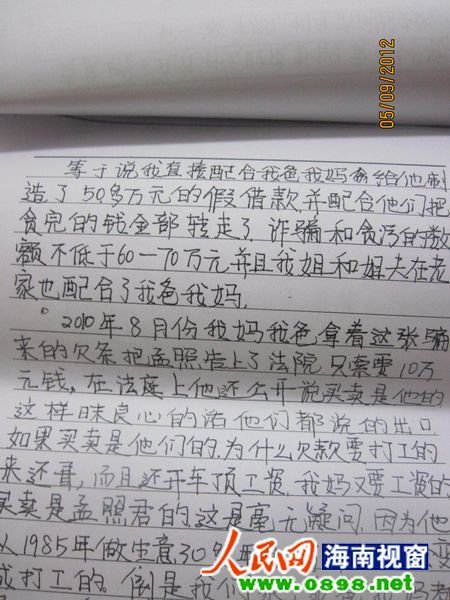 05/09/2012
等于说我直接配合我爸我妈给他制
造了50多万元的假借款并配合他们把
贪完的钱全部转走了,诈骗和贪污的数
额不低于60—70万元,并且我姐和姐夫在老
家也配合了我爸我妈.
2010年8月份我妈我爸拿着这张骗
来的欠条把孟照告上了法院 只索要10万
元钱,在法庭上他还公开说买卖是他的
这样昧良心的话他们都说的出口
如果买卖是他们的.为什么欠款要打工的
来还看,而且还开车顶工资.我妈又要工资的
买卖是孟照君的.这是毫无疑问.因为他
从1985年做生意30
成打工的.倒是我们
人民网 海南视窗
www.0898.net